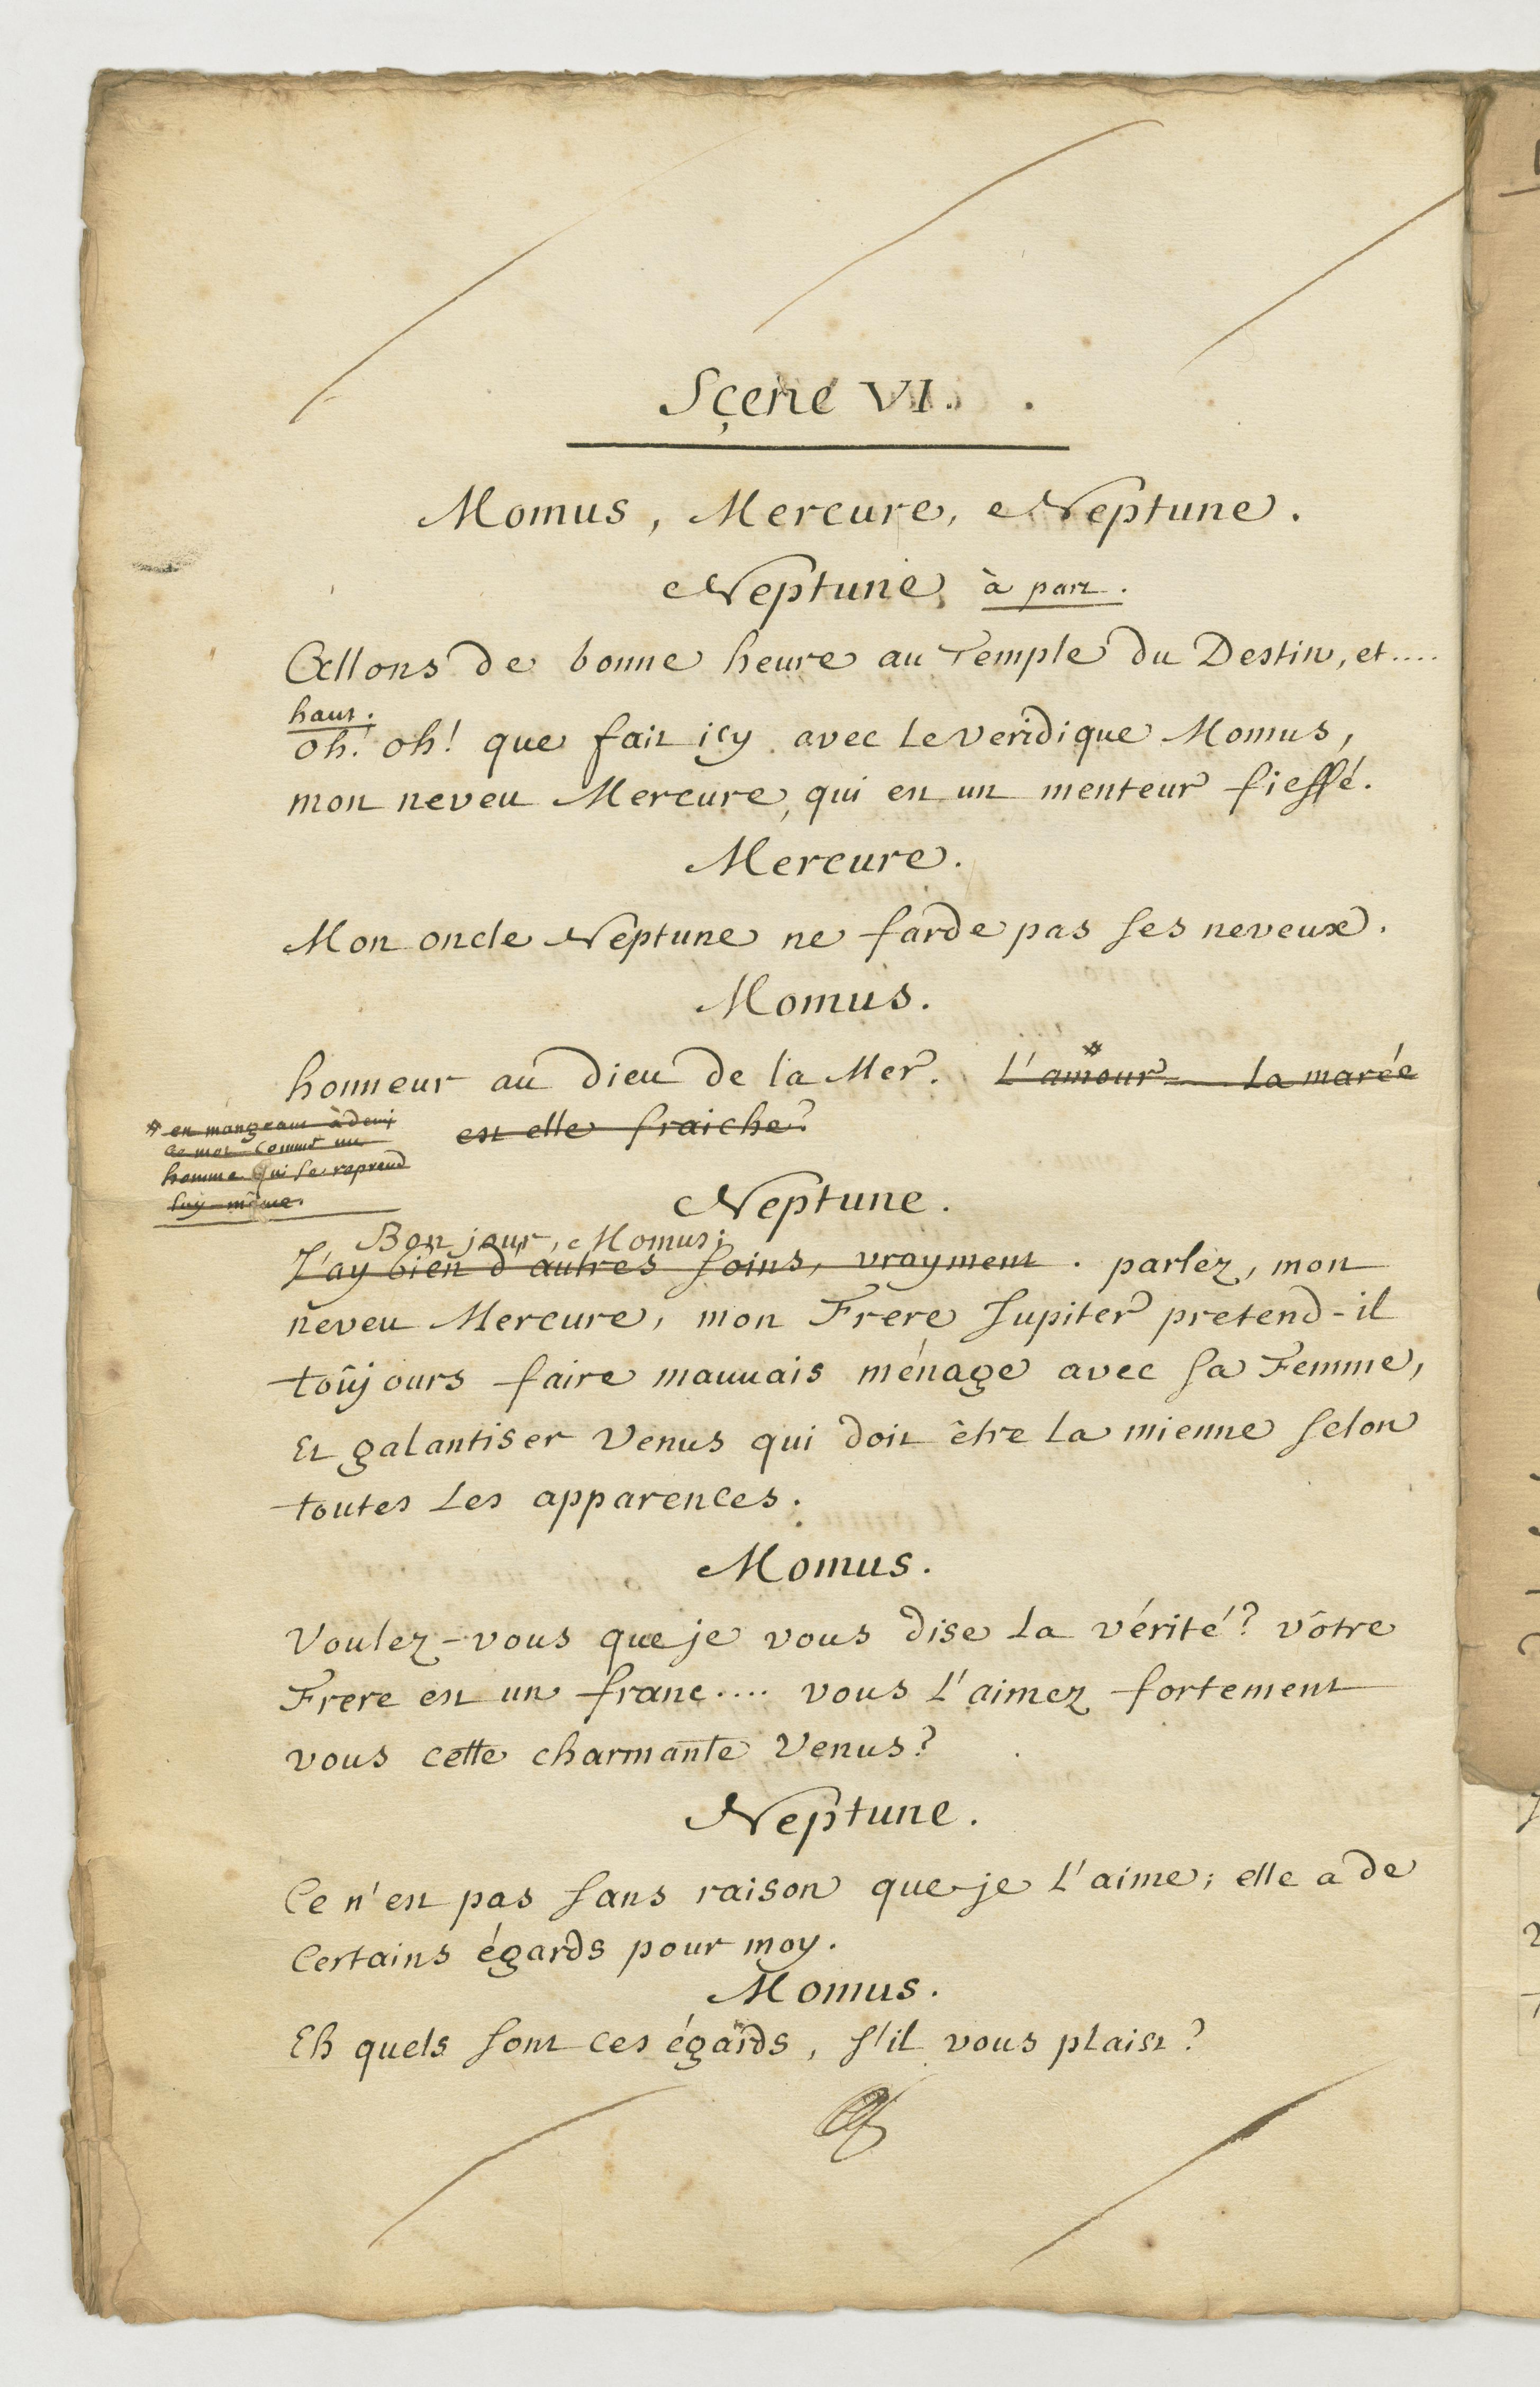 Sçene VI.
Momus, Mercure, Neptune.
Neptune, à part.
Allons de bonne heure au Temple du Destin, et....
haut.
oh! oh! que fait icy avec le veridique Momus,
mon neveu Mercure, qui est un menteur fieffé.
Mercure.
Mon oncle Neptune ne farde pas ses neveux.
Momus.
honneur au dieu de la Mer. L'amour.... La marée
est elle fraiche?
* en mangeant à demi
ce mot comme un
homme qui se reprend
luy même.
Neptune.
Bon jour, Momus;
J'ay bien d'autres soins, vrayment. parlez, mon
neveu Mercure, mon Frere Jupiter pretend-il
toûjours faire mauvais ménage avec sa Femme,
Et galantiser Venus qui doit être la mienne selon
toutes les apparences.
Momus.
Voulez-vous que je vous dise la vérité? vôtre
Frere est un franc.... vous l'aimez fortement
vous cette charmante Venus?
Neptune.
Ce n'est pas sans raison que je l'aime; elle a de
Certains égards pour moy.
Momus.
Eh quels sont ces égards, s'il vous plaist?